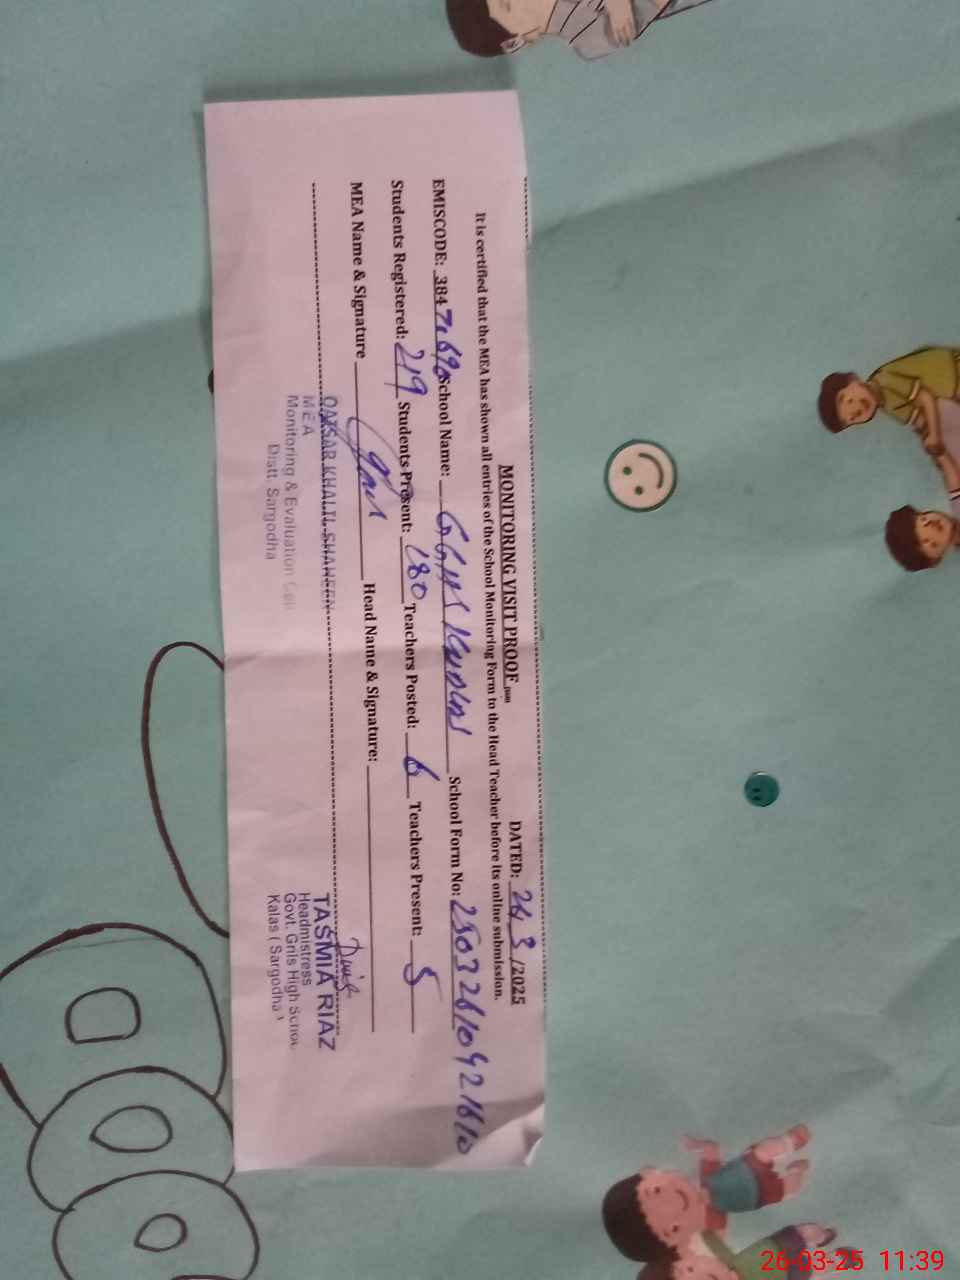 MONITORING VISIT PROOF
DATED: 26 3 /2025
It is certified that the MEA has shown all entries of the School Monitoring Form to the Head Teacher before its online submission.
EMISCODE: 384 School Name: GGHS School Form No:
Students Registered: 219 Students Present: 180 Teachers Posted: 6 Teachers Present: 5
MEA Name & Signature Head Name & Signature:
QAISAR KHALIL SHAHEEN
MEA
Monitoring & Evaluation Cell
Distt. Sargodha
TASMIA RIAZ
Headmistress
Govt. Grils High School
Kalas ( Sargodha )
26-03-25 11:39